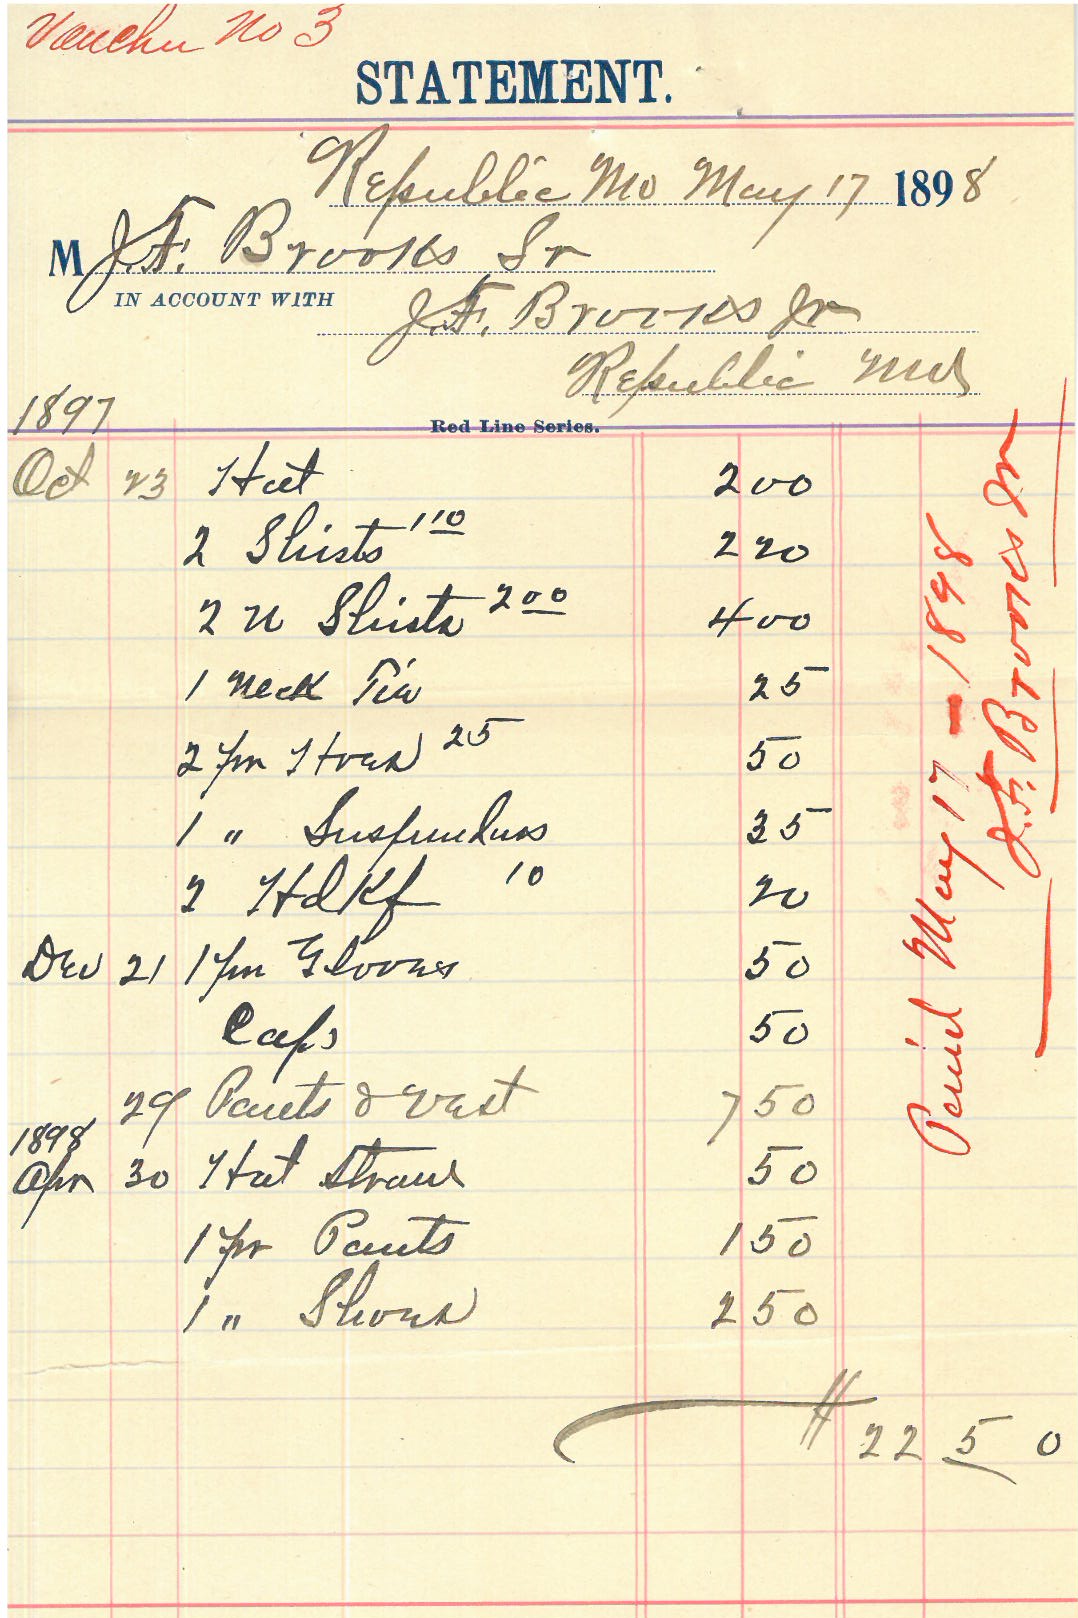 Voucher No 3
STATEMENT.
Republic Mo May 17 1898
M J.F. Brooks Sr
IN ACCOUNT WITH
J.F. Brooks Jr
Republic Mo
1897
Red Line Series.
Oct 23 Hat 200
2 Shirts 1 10 220
2 N Shirts 2 00 400
1 Neck Tie 25
2 pr Hoes 25 50
1 " Suspenders 35
2 Hdkf 10 20
Dec 21 1 pr Gloves 50
Caps 50
29 Pants & Vest 750
1898
Apr 30 Hat Straw 50
1 pr Pants 150
1 " Shoes 250
$ 22 50
Paid May 17 - 1898
J.F. Brooks Jr